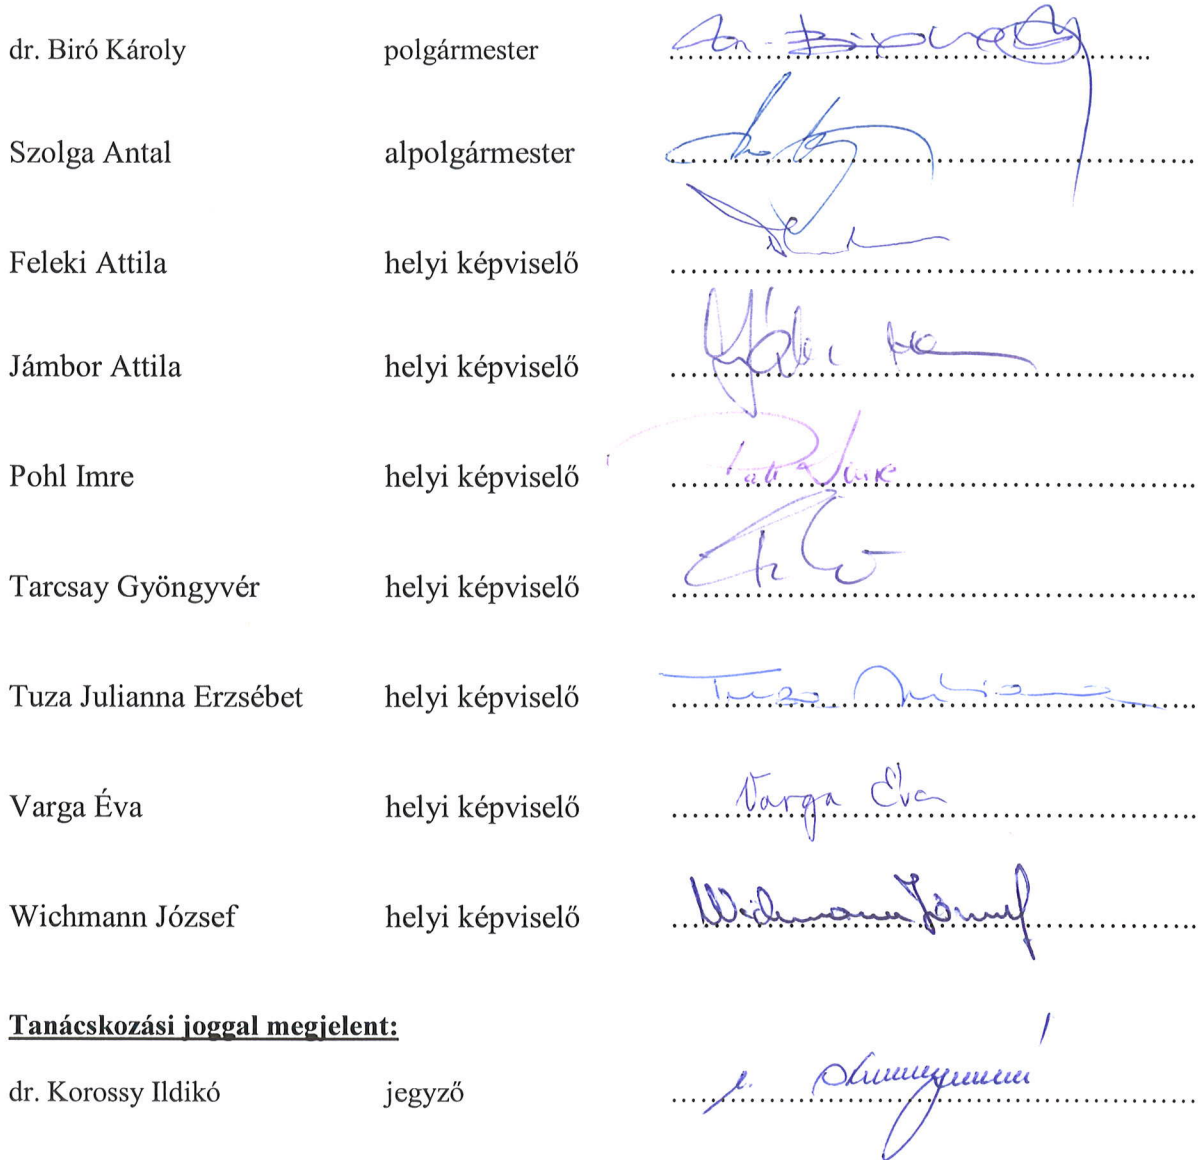 dr. Biró Károly polgármester dr. Biró Károly
Szolga Antal alpolgármester
Feleki Attila helyi képviselő
Jámbor Attila helyi képviselő
Pohl Imre helyi képviselő Pohl Imre
Tarcsay Gyöngyvér helyi képviselő
Tuza Julianna Erzsébet helyi képviselő Tuza Julianna
Varga Éva helyi képviselő Varga Éva
Wichmann József helyi képviselő Wichmann József
Tanácskozási joggal megjelent:
dr. Korossy Ildikó jegyző